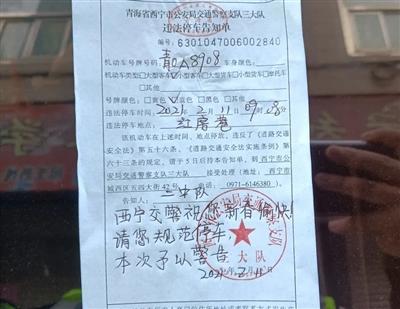 青海省西宁市公安局交通警察支队三大队
违法停车告知单
编号:6301047006002840
机动车号牌号码: 青A8908 车身颜色:
机动车类型:□大型客车□小型客车□大型货车□小型货车□摩托车
□其他
号牌颜色:□黄色□蓝色□黑色□其他
违法停车时间:2021年2月11日09时08分
违法停车地点:红房巷
该机动车在上述时间、地点停放,违反了《道路交通
安全法》第五十六条、《道路交通安全法实施条例》第
六十三条的规定,请于5日后持本告知单,到西宁市公
安局交通警察支队三大队接受处理。地址:西宁市
城西区五四大街42号 电话:0971-6146380
告知人: 二中队
西宁交警祝您新春愉快!
请您规范停车,
本次予以警告
2021年2月11日
三大队